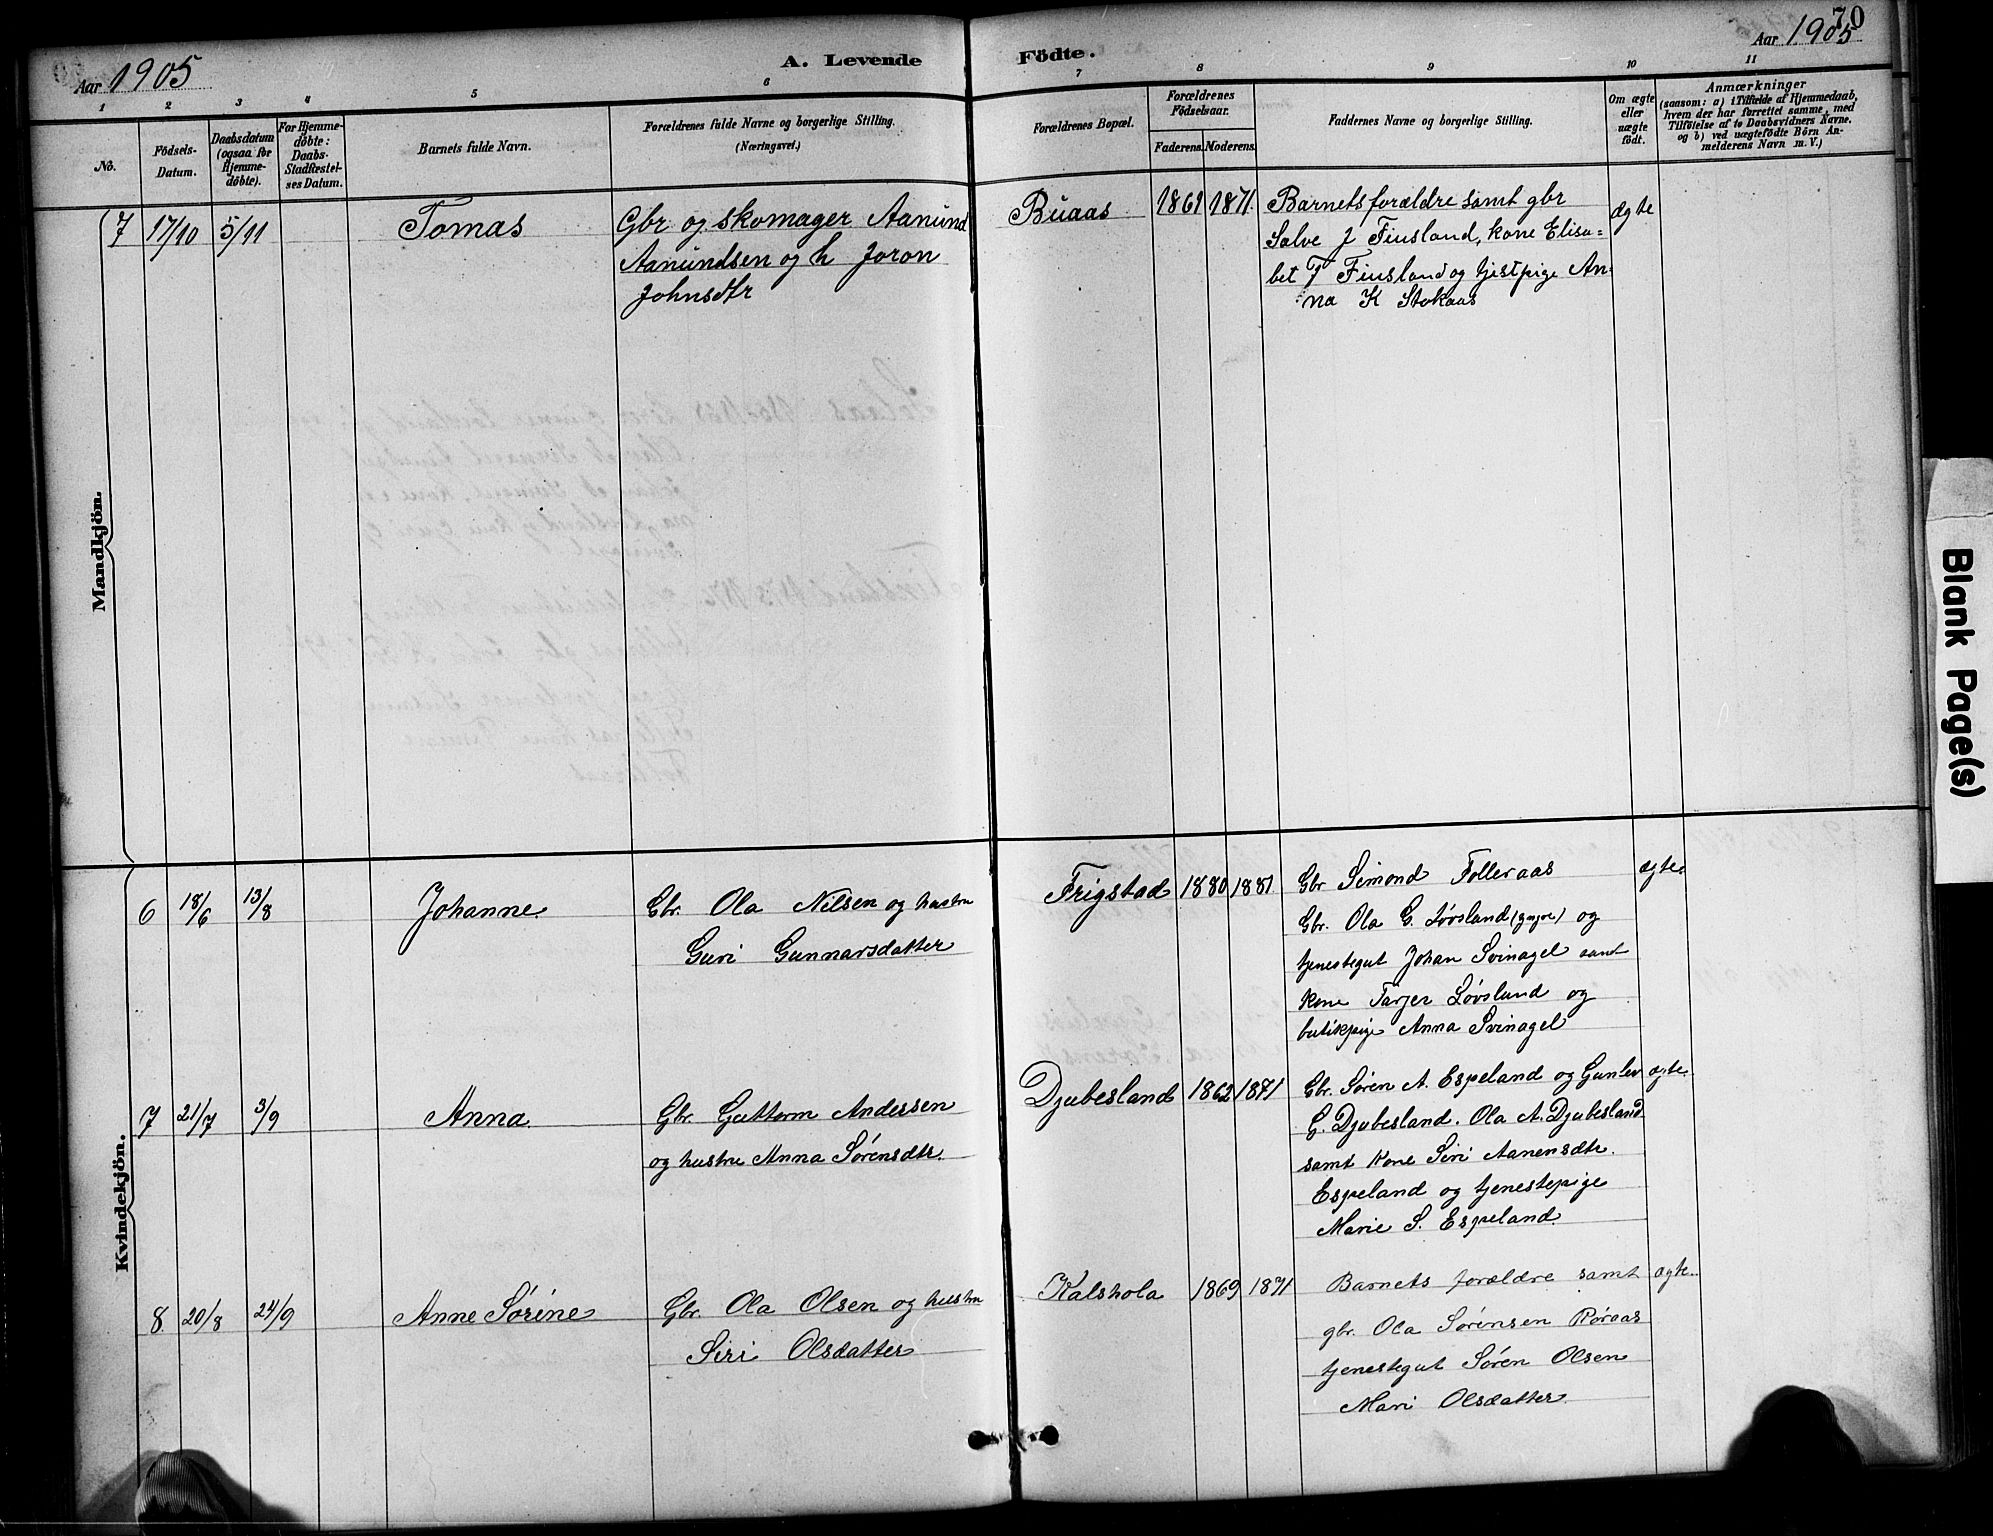 70
Aar 1905
A. Levende Födte.
Aar 1905
1 2 3 4 5 6 7 8 9 10 11
No.
Födsels-Datum.
Daabsdatum (ogsaa for Hjemmedøbte).
For Hjemmedöbte: Daabs-Stadfæstelses Datum.
Barnets fulde Navn.
Forældrenes fulde Navne og borgerlige Stilling. (Næringsvei.)
Forældrenes Bopæl.
Forældrenes Födselsaar.
Faderens. Moderens.
Faddernes Navne og borgerlige Stilling.
Om ægte eller uægte født.
Anmærkninger
(saasom: a) i Tilfælde af Hjemmedaab, hvem der har forrettet samme, med Tilföielse af to Daabsvidners Navne, og b) ved uægtefödte Börn Anmelderens Navn m. V.)
Mandkjön.
7 17/10 5/11 Tomas Gbr og skomager Aanund Buaas 1861 1871 Barnets forældre samt gbr ægte
Aanundsen og h Joron Salve J Finsland, kone Elisa=
Johnsdtr bet T Finsland og tjistpige An-
na K Stokaas
Kvindekjön.
6 18/6 13/8 Johanne Gbr. Ola Nilsen og hustru Frigstad 1880 1881 Gbr Simond Folleraas ægte.
Guri Gunnarsdatter Gbr. Ola G. Løvsland og
tjenestegut Johan Svinagel samt
kone Tarjer Løvsland og
butikpige Anna Svinagel
7 21/7 3/9 Anna Gbr. Guttorm Andersen Djubesland 1862 1871 Gbr. Søren A. Espeland og Gunlev ægte.
og hustru Anna Sørensdtr. G. Djubesland. Ola A. Djubesland
samt kone Siri Aanensdtr.
Espeland og tjenestepige
Marie S. Espeland
8 20/8 24/9 Anne Sørine Gbr. Ola Olsen og hustru Kalshola 1869 1871 Barnets forældre samt ægte.
Siri Olsdatter gbr. Ola Sørensen Røraas
tjenestegut Søren Olsen
Mari Olsdatter
Blank Page(s)